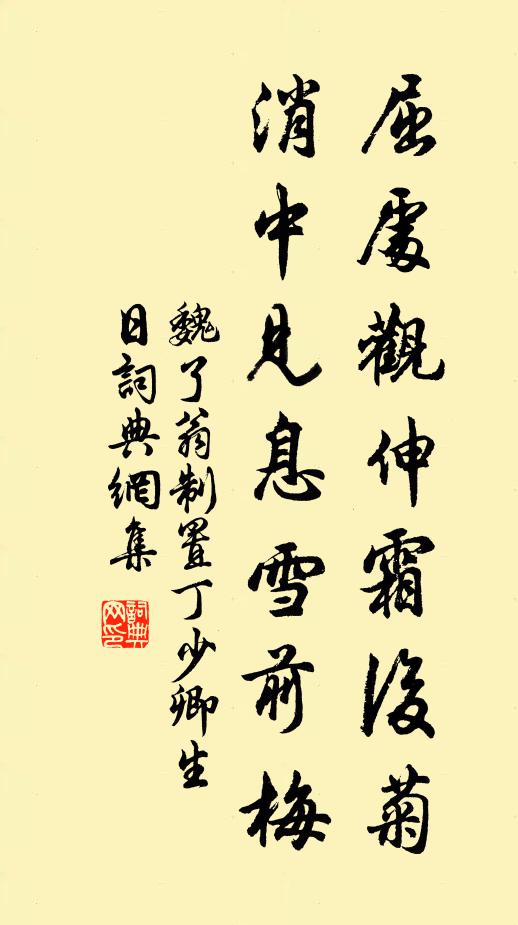 屈處觀伸霜後菊
消中見息雪前梅
魏了翁制置丁少卿生
日詞典網集
詞典
网印